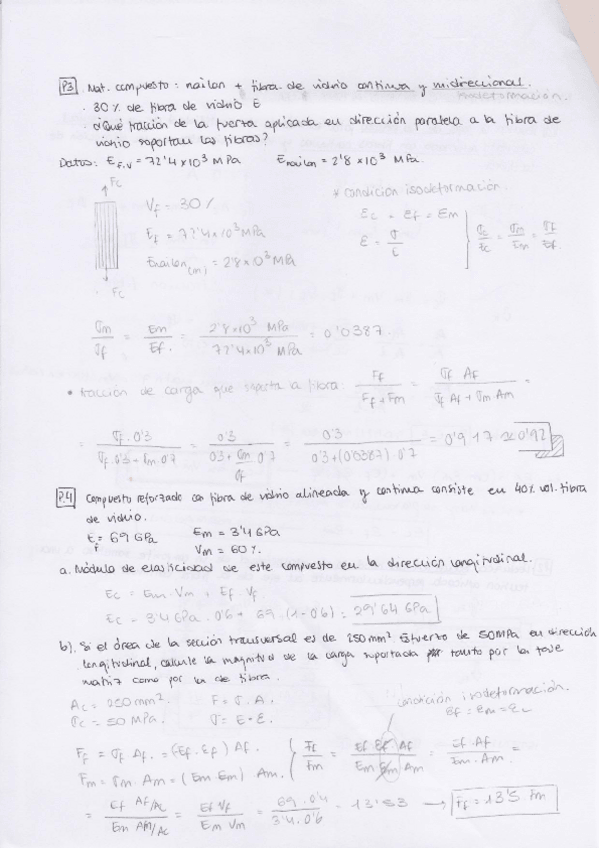 P3 Mat. compuesto: nailon + fibra de vidrio continua y unidireccional.
· 30% de fibra de vidrio E
· ¿Qué fracción de la fuerza aplicada en dirección paralela a la fibra de
vidrio soportan las fibras?
Datos: E f.v = 72'4 x 10³ MPa Enailon = 2'8 x 10³ MPa.
Fc
* condición isodeformación.
Vf = 30%
Ef = 72'4 x 10³ MPa
Enailon (m) = 2'8 x 10³ MPa
Fc
Ɛc = Ɛf = Ɛm
Ɛ = σ/E
σc/Ec = σm/Em = σf/Ef.
σm/σf = Em/Ef. = 2'8 x 10³ MPa / 72'4 x 10³ MPa = 0'0387.
• fracción de carga que soporta la fibra: Ff / (Ff + Fm) = σf Af / (σf Af + σm Am) =
= σf · 0'3 / (σf · 0'3 + σm · 0'7) = 0'3 / (0'3 + σm/σf · 0'7) = 0'3 / (0'3 + (0'0387) · 0'7) = 0'917 ≈ 0'92
P.4 Compuesto reforzado con fibra de vidrio alineada y continua consiste en 40% vol. fibra
de vidrio.
Ef = 69 GPa Em = 3'4 GPa
Vm = 60%.
a. Módulo de elasticidad de este compuesto en la dirección longitudinal.
Ec = Em · Vm + Ef · Vf
Ec = 3'4 GPa · 0'6 + 69 · (1-0'6) = 29'64 GPa
b). Si el área de la sección transversal es de 250 mm². Esfuerzo de 50 MPa en dirección
longitudinal, calcule la magnitud de la carga soportada tanto por la fase
matriz como por la de fibra.
Ac = 250 mm². F = σ · A.
σc = 50 MPa. σ = E · Ɛ.
condición isodeformación.
Ɛf = Ɛm = Ɛc
Ff = σf Af. = (Ef · Ɛf) Af.
Fm = σm · Am = (Em Ɛm) Am.
Ff/Fm = Ef Ɛf Af / Em Ɛm Am = Ef · Af / Em · Am =
= Ef Af/Ac / Em Am/Ac = Ef Vf / Em Vm = 69 · 0'4 / 3'4 · 0'6 = 13'53 → Ff = 13'5 Fm